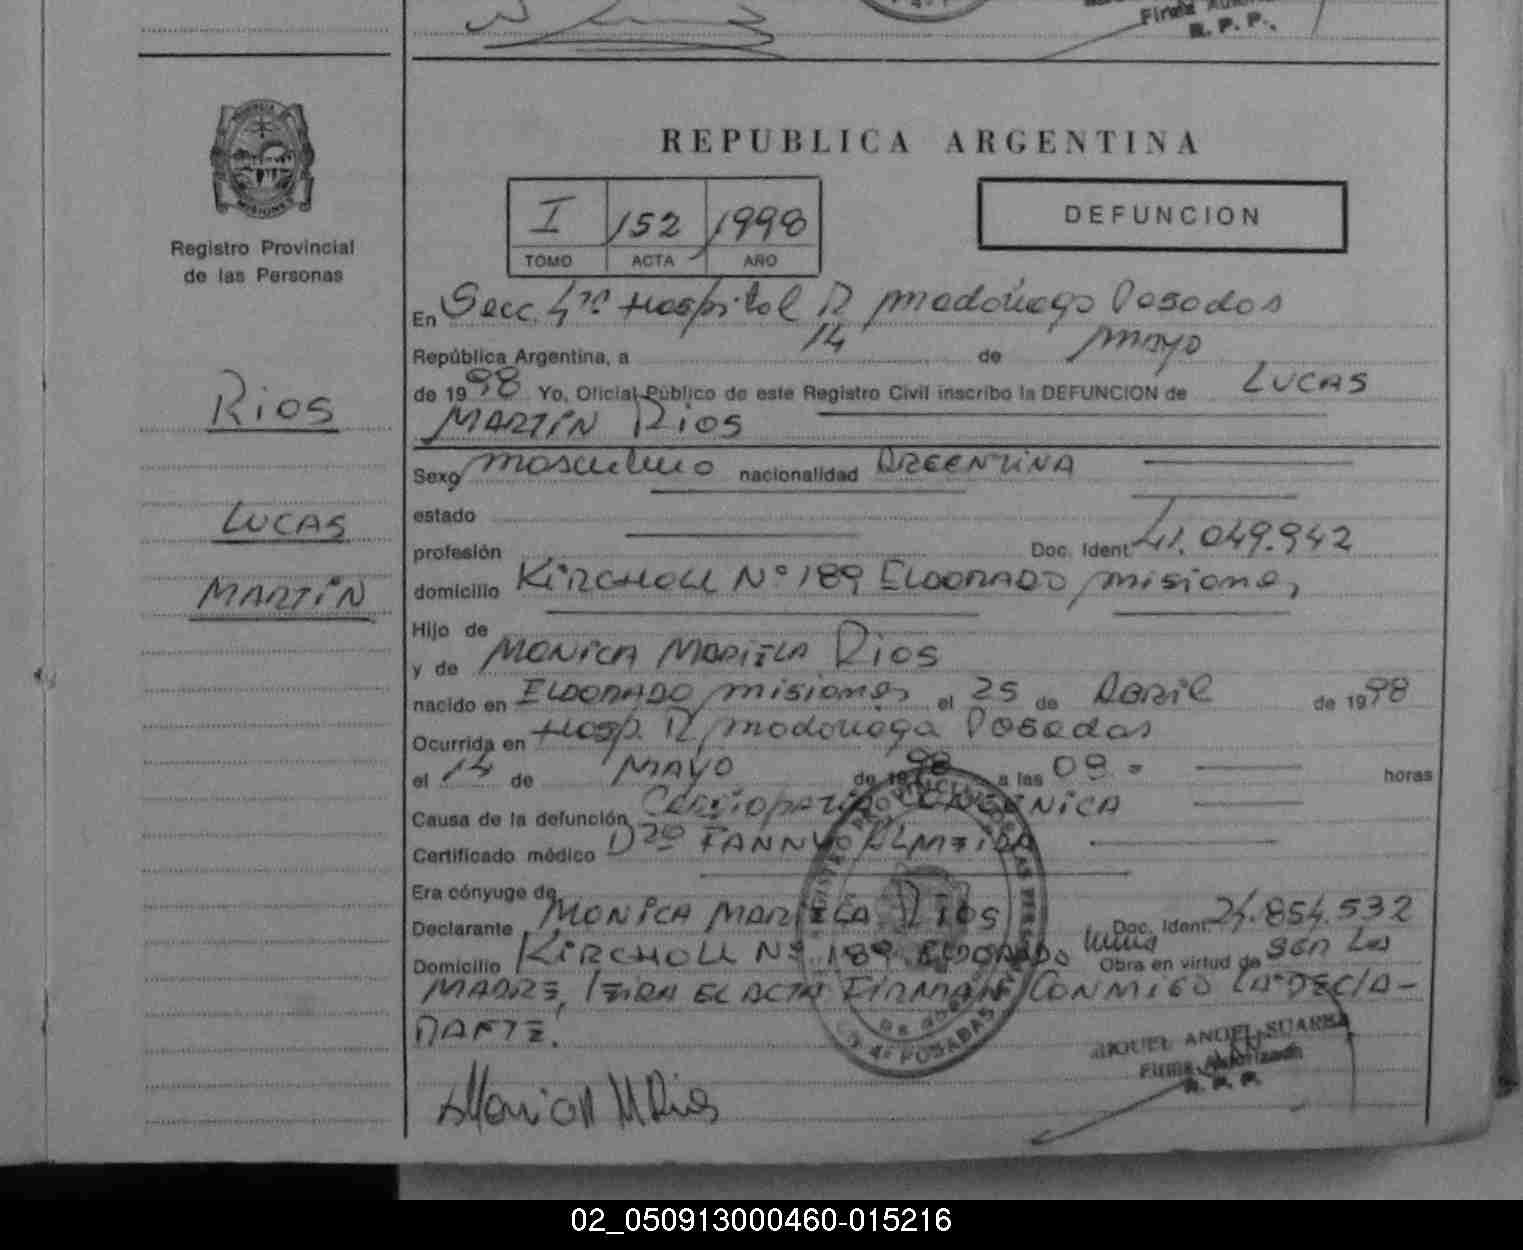 Firma
R. P. P.
PROVINCIA
MISIONES
Registro Provincial
de las Personas
REPUBLICA ARGENTINA
I 152 1998
TOMO ACTA AÑO
DEFUNCION
En Secc. 4ta Hospital R Madariaga Posadas
República Argentina, a 14 de Mayo
de 1998 Yo, Oficial Público de este Registro Civil inscribo la DEFUNCION de LUCAS
MARTÍN RIOS
Rios
LUCAS
MARTÍN
Sexo masculino nacionalidad ARGENTINA
estado
profesión Doc. Ident. 41.049.942
domicilio KIRCHOLL Nº 189 ELDORADO Misiones
Hijo de
y de MONICA MARIELA RIOS
nacido en ELDORADO Misiones el 25 de Abril de 1998
Ocurrida en Hosp. R Madariaga Posadas
el 14 de MAYO de 1998 a las 09 horas
Causa de la defunción Cardiopatía
Certificado médico Dra FANNY ALMEIDA
Era cónyuge de
Declarante MONICA MARIELA RIOS Doc. Ident. 24.854.532
Domicilio KIRCHOLL Nº 189 ELDORADO Obra en virtud de ser la
MADRE, leida el ACTA FIRMAN CONMIGO LA DECLA-
RANTE.
POSADAS
MIGUEL ANGEL SUAREZ
Firma Autorizada
R. P. P.
Monica M Rios
02_050913000460-015216